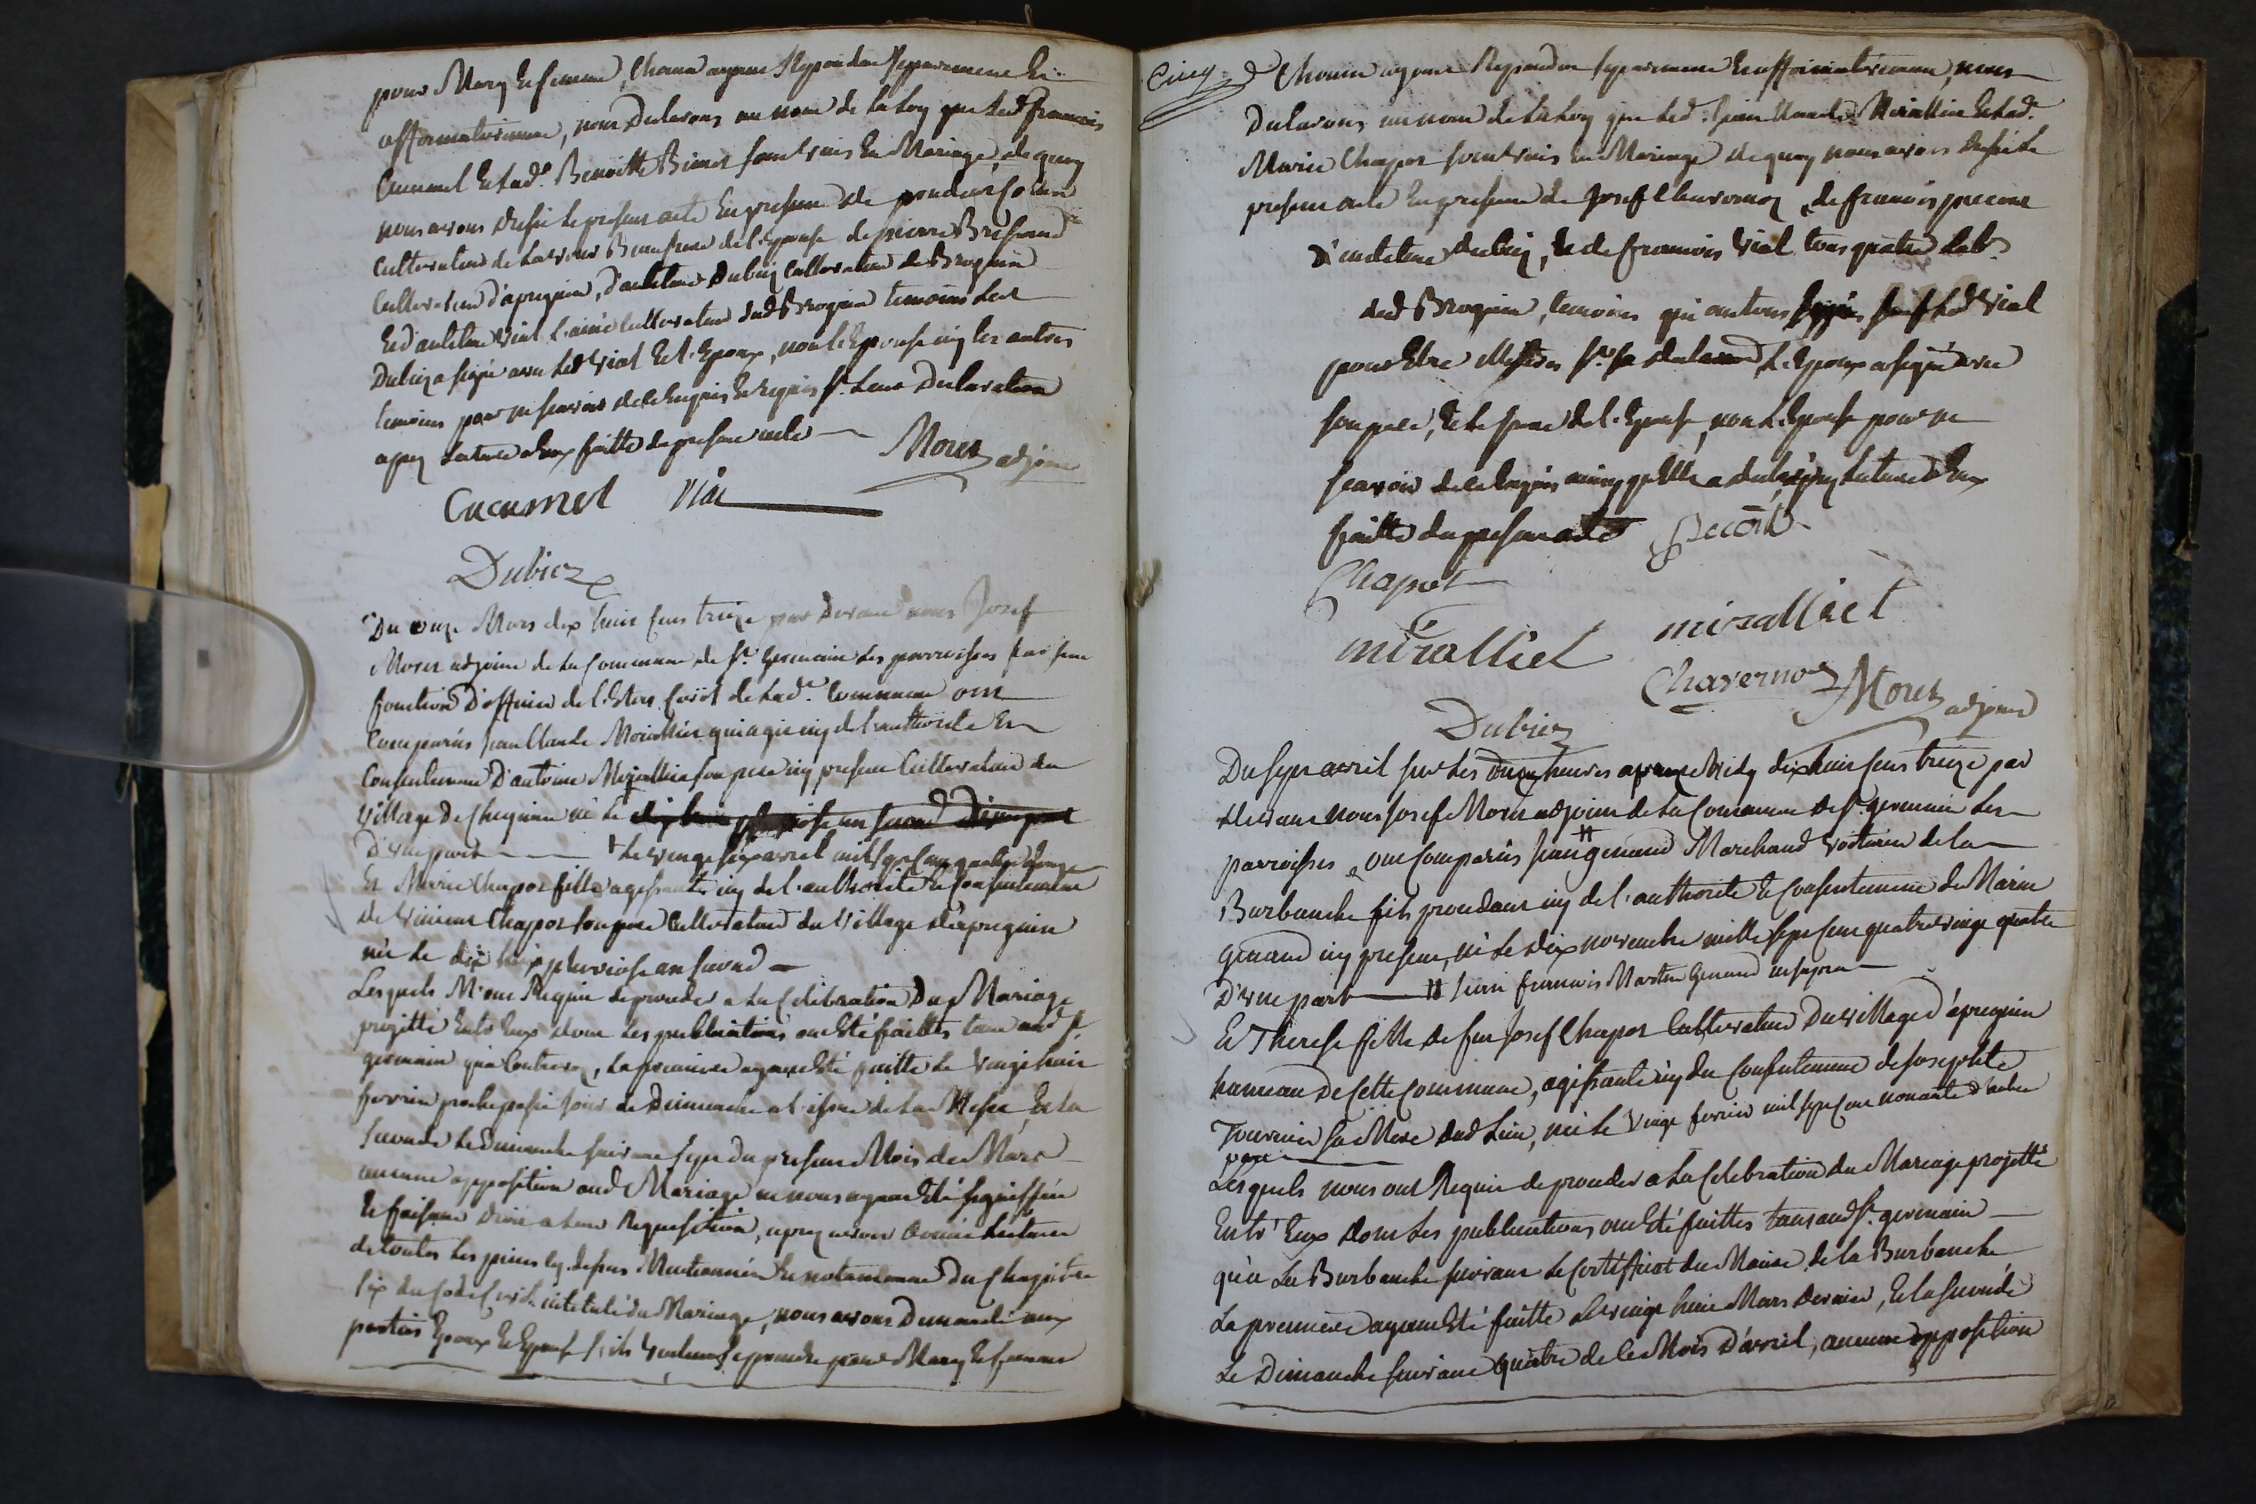 pour Mary et femme, Chacun ayant Repondu sepparement et
affirmativement, nous Declarons au nom de la Loy que Led françois
Cucumel et Lad.e Benoitte Binet sont unis en Mariage, de quoy
nous avons dressé le present acte en presence de
Cultivateur de Beaufrere de l'Epouse de pierre
Cultivateur d'apregnin, d'antelme Dubiez Cultivateur de Brognin
Et d'antelme Vial l'ainé Cultivateur dud Brognin temoins Led
Dubiez a signé avec Led Vial et l'Epoux, non l'Epouse ny les autres
temoins pour ne scavoir de ce Enquis et requis sr. Leur Declaration
apres Lecture a Eux faitte du present acte
Moret adjoint
Cucumel Vial
Dubiez
Du onze Mars dix huit cens treize par Devant nous Josef
Moret adjoint de la Commune de St. Germain les parroisses faisant
fonction D'officier de l'Etat Civil de Lad.e Commune ont
Comparus Jean Claude Miralliet qui agit icy de l'authorité et
Consentement D'antoine Miralliet son pere icy present Cultivateur du
Village de Cheignieu né le
D'une part + Le vingt six avril mil sept cent quatre vingt onze
Et Marie Chapot fille agissante icy de l'authorité et Consentement
de Vincent Chapot son pere Cultivateur du Village d'apregnin
née le dix huit pluviose an second
Lesquels M'ont Requis de proceder a la Celebration du Mariage
projetté Entr Eux dont les publications ont Eté faittes tant aud St.
germain qu'a Contrevoz, la premiere ayant Eté faitte le vingt huit
fevrier proche passé jour de Dimanche a l'issue de la Messe, et la
seconde le Dimanche suivant sept du present Mois de Mars
aucune opposition aud Mariage ne nous ayant Eté signiffiée
et faisant droit a leur Requisition, apres avoir Donné Lecture
de toutes les pieces cy dessus Mentionnées et notamment du Chapitre
six du Code Civil intitulé du Mariage, nous avons Demandé aux
parties Epoux et Epouse s'ils veulent se prendre pour Mary et femme
Cinq
Chacun ayant Repondu separement et affirmativement, nous
Declarons au nom de la Loy que Led. Jean Claude Miralliet et Lad.
Marie Chapot sont unis en Mariage de quoy nous avons dressé le
present acte en presence de Josef Chavernoz, de françois
D'antelme Dubiez, et de francois Vial tous quatre
dud Brognin, temoins qui ont tous signés sauf Led Vial
pour Etre illettré sr. sa declaration L'Epoux a signé avec
son pere, et le pere de l'Epouse, non L'Epouse pour ne
scavoir de ce Enquis ainsy qu'Elle a declaré apres Lecture a Eux
faitte du present acte
Chapot
miralliet miralliet
Chavernoz Moret adjoint
Dubiez
Du sept avril sur les heures apres Midy dix huit cens treize par
devant nous Josef Moret adjoint de la Commune de St. germain les
parroisses, ont Comparus Jean genand Marchand voiturier de la
Burbanche fils procedant icy de l'authorité et Consentement de Marin
genand icy present, né le dix novembre mille sept cent quatre vingt quatre
D'une part # jean francois Martin Genand
Et Therese fille de feu Josef Chapot Cultivateur du village d'apregnin
hameau de Cette Commune, agissante icy du Consentement de Josephte
Tournier sa Mere dud Lieu, née le Vingt fevrier mil sept cent nonante d'autre
part
Lesquels nous ont Requis de proceder a la Celebration du Mariage projetté
Entr' Eux dont les publications ont Eté faittes tant aud St. germain
qu'a La Burbanche suivant le Certifficat du Maire de la Burbanche
La premiere ayant Eté faitte le vingt huit Mars dernier, Et la seconde
Le Dimanche suivant quatre de ce Mois d'avril, aucune opposition